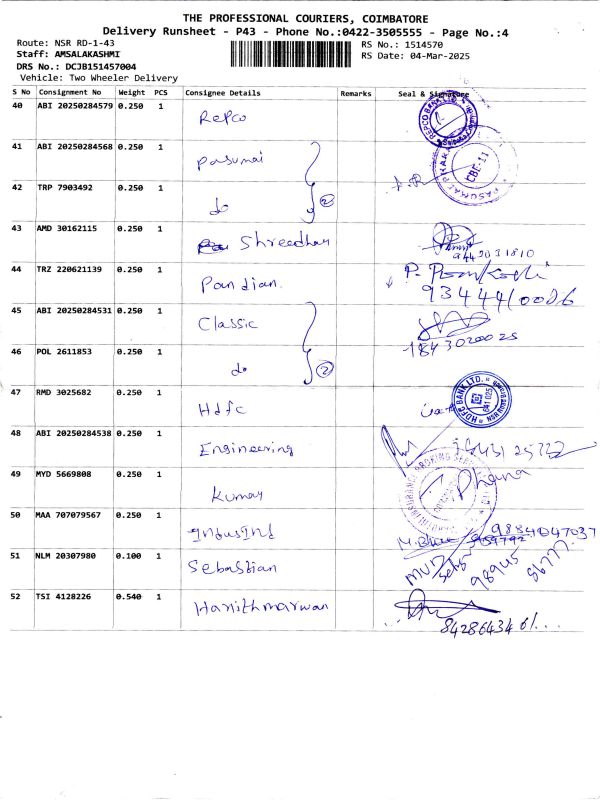 THE PROFESSIONAL COURIERS, COIMBATORE
Delivery Runsheet - P43 - Phone No.:0422-3505555 - Page No.:4
Route: NSR RD-1-43
RS No.: 1514570
Staff: AMSALAKASHMI
RS Date: 04-Mar-2025
DRS No.: DCJB151457004
Vehicle: Two Wheeler Delivery
S No Consignment No Weight PCS Consignee Details Remarks Seal & Signature
40 ABI 20250284579 0.250 1 Repco
REPCO BANK LTD
41 ABI 20250284568 0.250 1 pasumai
CBE-11
42 TRP 7903492 0.250 1 do 2
43 AMD 30162115 0.250 1 Shreedhar
44 TRZ 220621139 0.250 1 Pandian. P.
9344410086
45 ABI 20250284531 0.250 1 Classic
46 POL 2611853 0.250 1 do 2
47 RMD 3025682 0.250 1 Hdfc
HDFC BANK LTD.
48 ABI 20250284538 0.250 1 Engineering
49 MYD 5669808 0.250 1 Kumar Dhana
50 MAA 707079567 0.250 1 IndusInd 9884047037
51 NLM 20307980 0.100 1 Sebastian
98945
86777
52 TSI 4128226 0.540 1 Harithmarwan